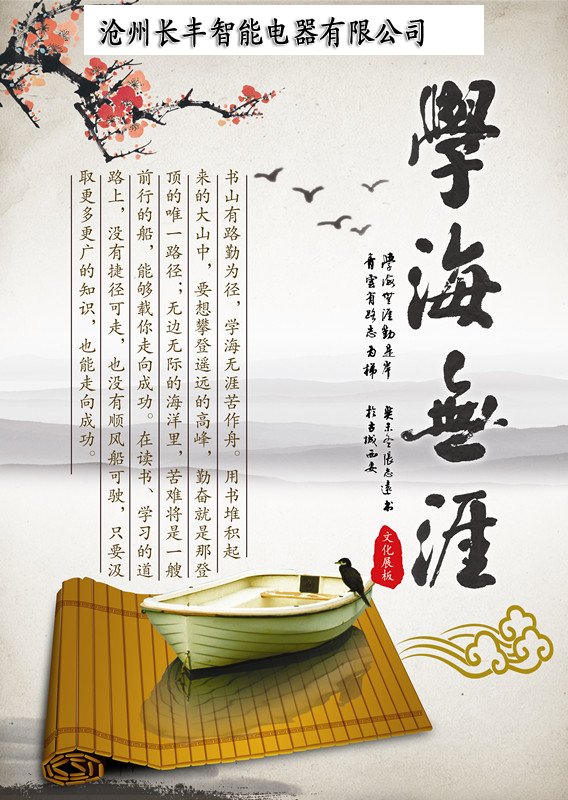 沧州长丰智能电器有限公司
學海無涯
學海無涯勤是岸
青雲有路志為梯
於古城西安
文化展板
书山有路勤为径，学海无涯苦作舟。用书堆积起
来的大山中，要想攀登遥远的高峰，勤奋就是那登
顶的唯一路径；无边无际的海洋里，苦难将是一艘
前行的船，能够载你走向成功。在读书、学习的道
路上，没有捷径可走，也没有顺风船可驶，只要汲
取更多更广的知识，也能走向成功。